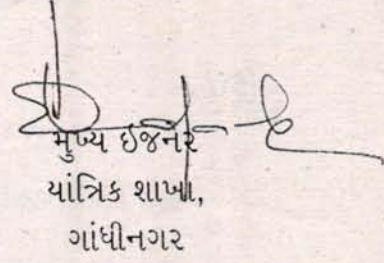 મુખ્ય ઇજનેર
યાંત્રિક શાખા,
ગાંધીનગર